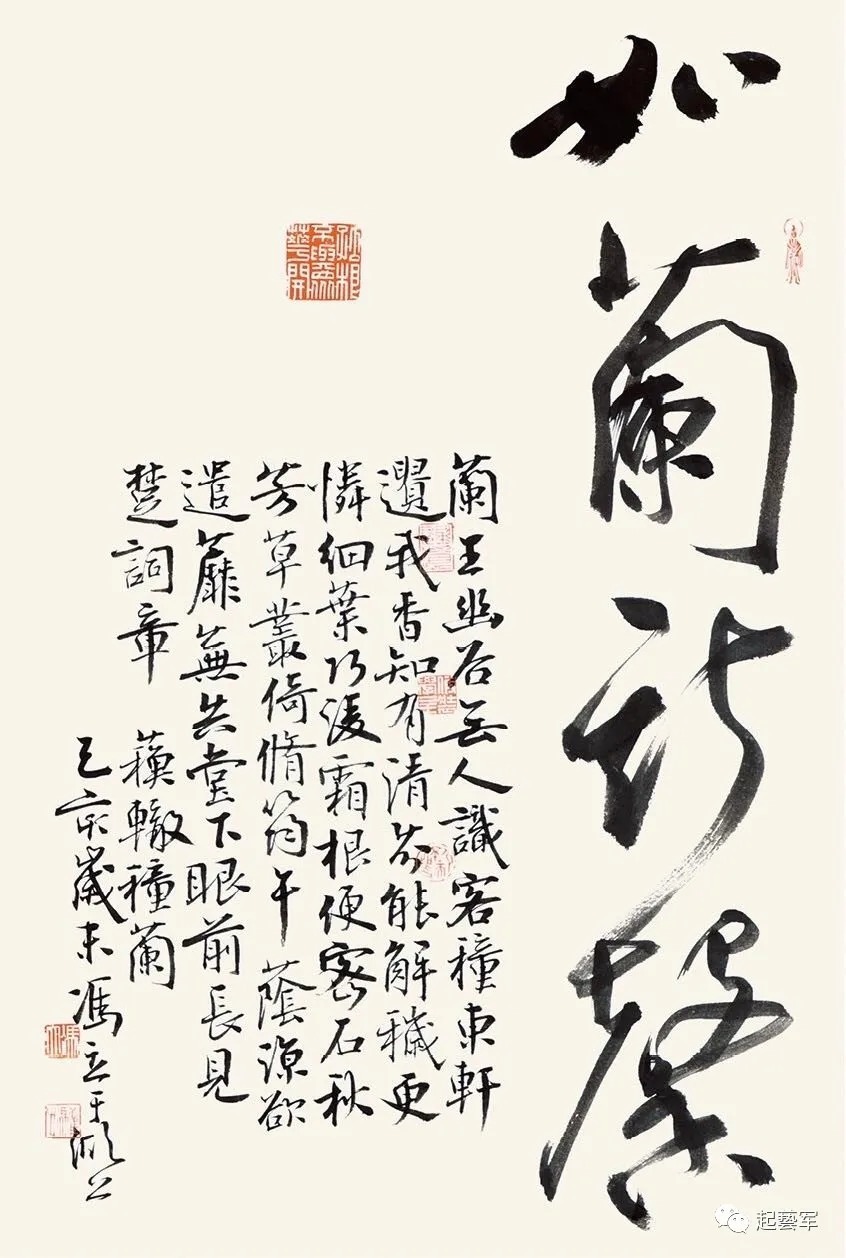 如蘭斯馨
蘭生幽谷无人識客種東軒
遺我香知有清芬能解穢更
憐細葉巧淩霜根便密石秋
芳草叢倚脩筠午蔭涼欲
遣蘼蕪共堂下眼前長見
楚詞章 蘇轍種蘭
己亥歲末馮立于
起藝军